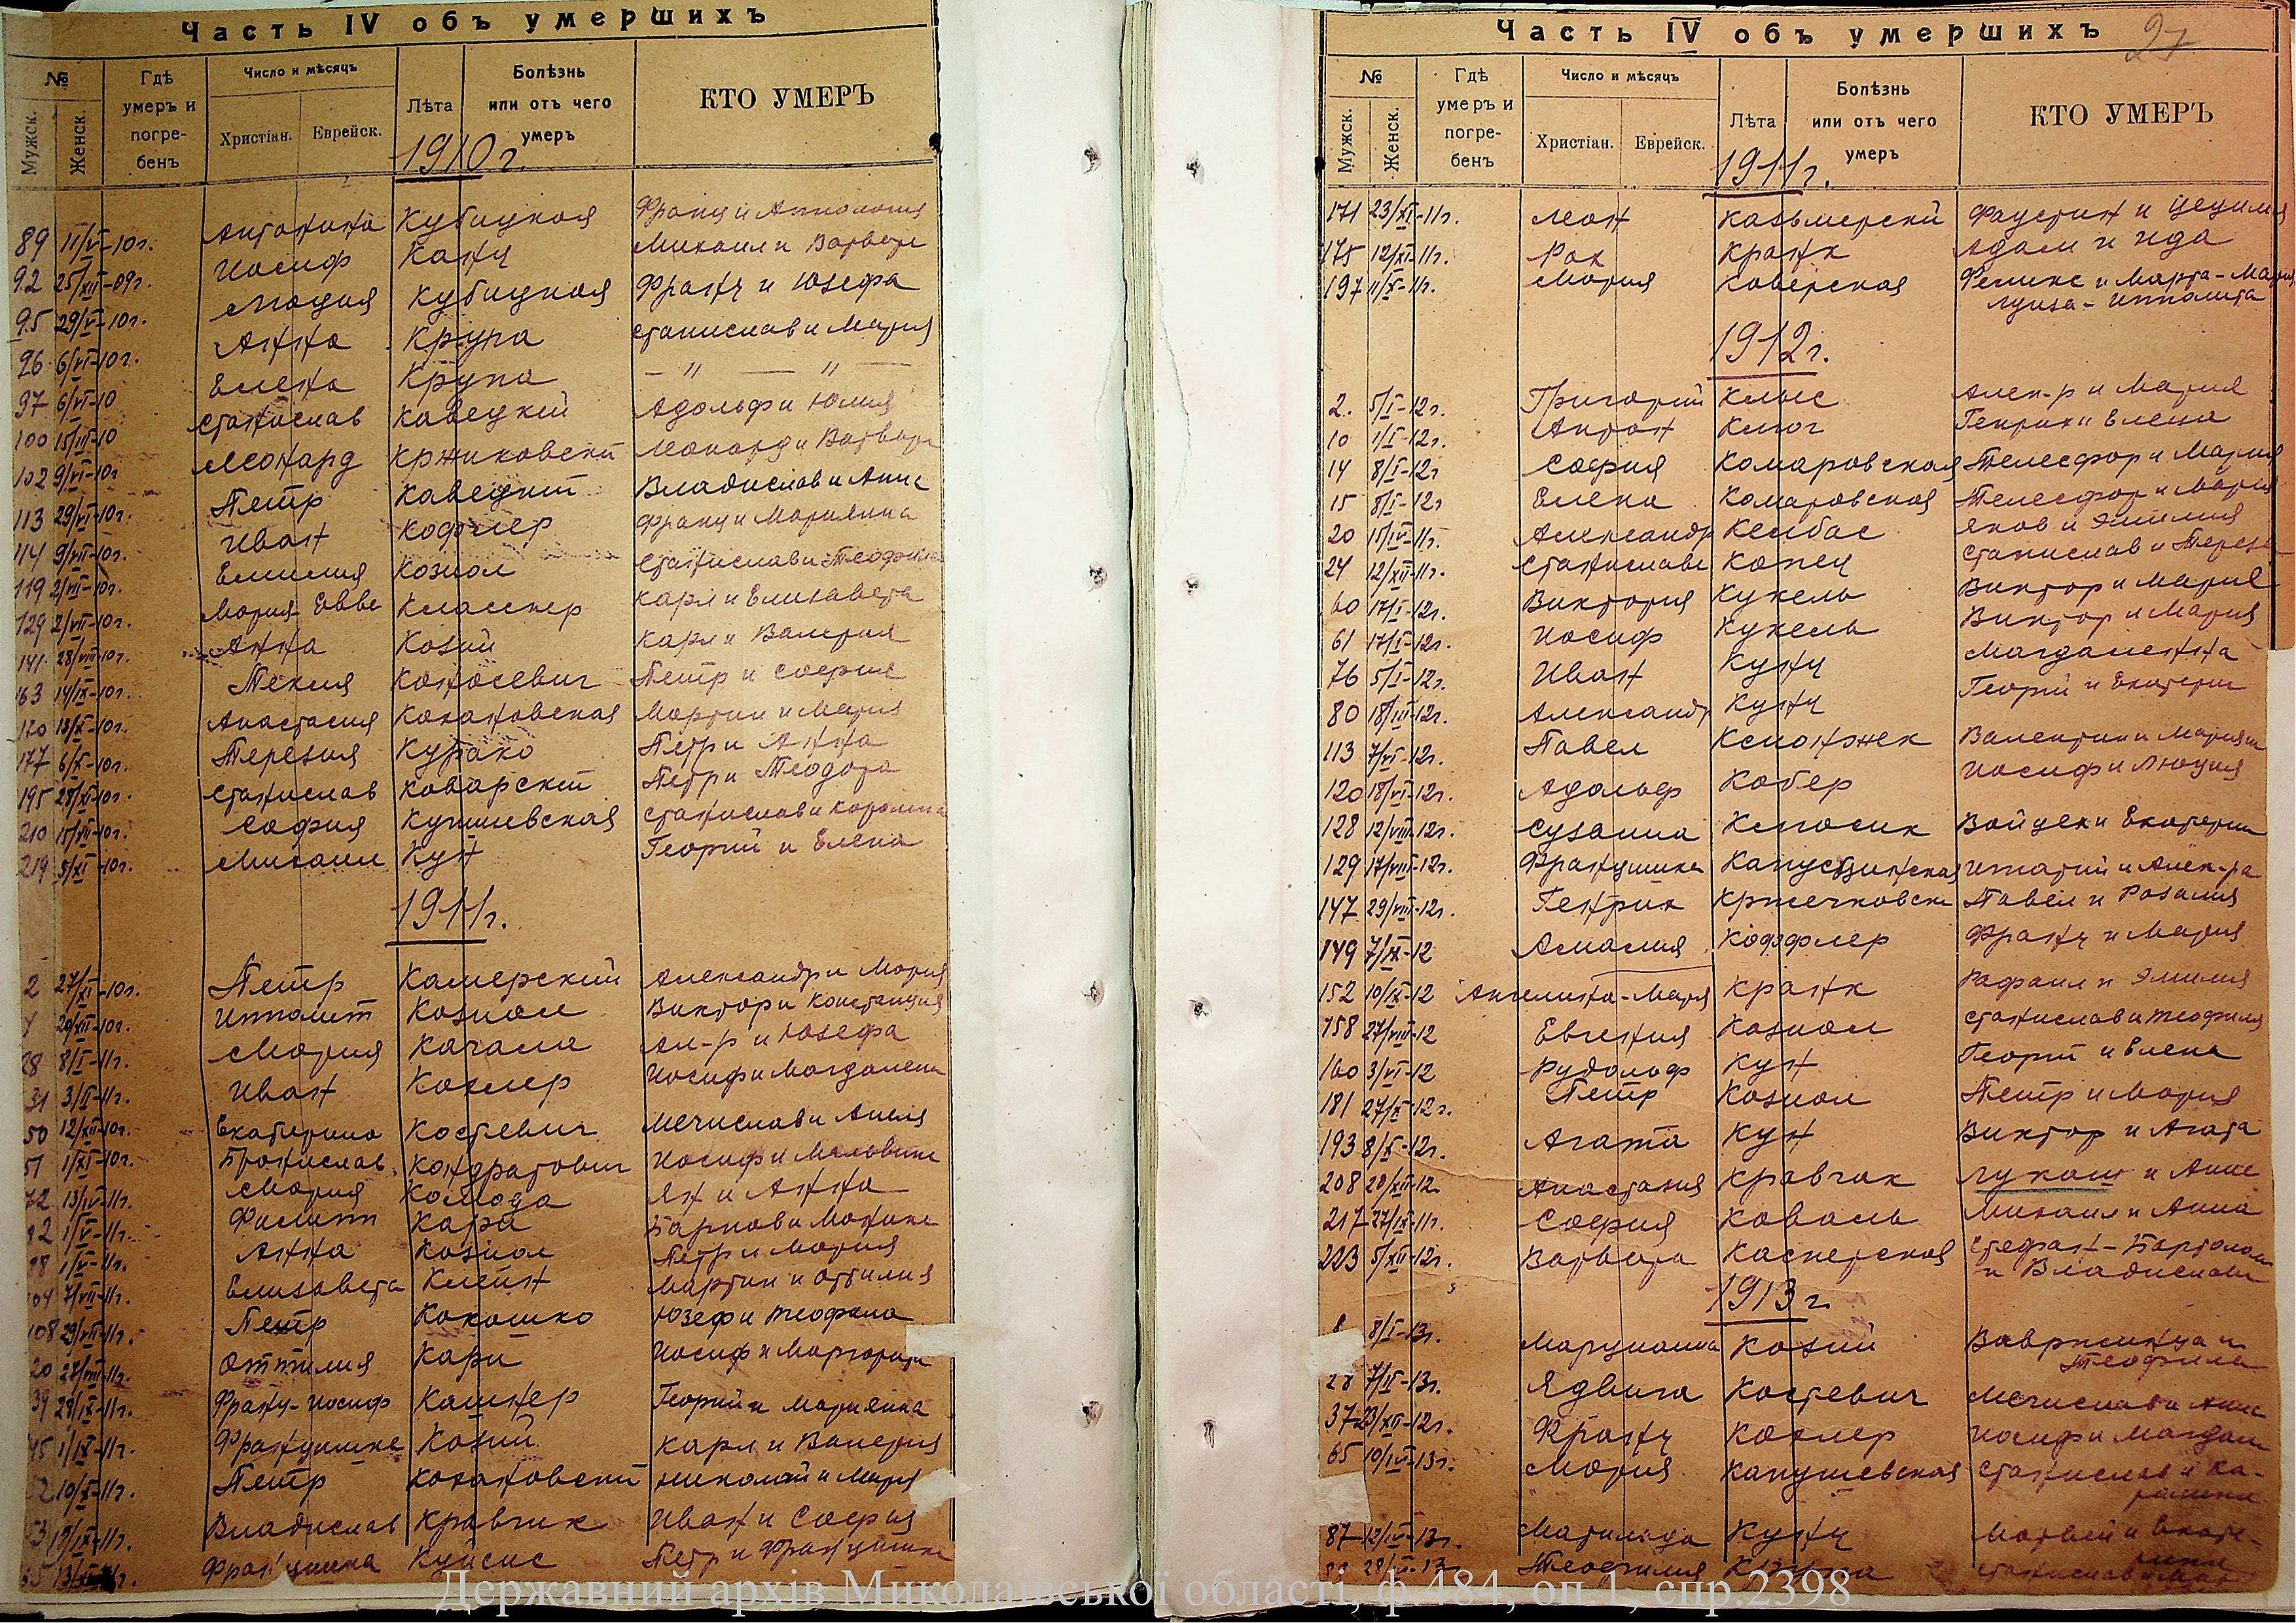 Часть IV объ умершихъ
№
Мужск.
Женск.
Гдѣ умеръ и погре-бенъ
Число и мѣсяцъ
Христіан.
Еврейск.
Лѣта
Болѣзнь или отъ чего умеръ
КТО УМЕРЪ
1910 г.
89 11/V-10г. Антонина Кубицкая Франц и Апполония
92 25/XII-09г. Иосиф Канц Михаил и Варвара
95 29/V-10г. Люция Кубицкая Франц и Юзефа
96 6/VI-10г. Анна Крупа Станислав и Мария
97 6/VI-10 Елена Крупа — " — " —
100 15/III-10 Станислав Кавецкий Адольф и Юлия
102 9/VI-10г Леонард Кржиковский Леонард и Варвара
113 29/VI-10г. Петр Кавецкий Владислав и Анна
114 9/VII-10г. Иван Кофлер Франц и Марианна
119 2/VII-10г. Емилия Козиол Станислав и Теофила
129 2/VII-10г. Мария Евве Класснер Карл и Елизавета
141 28/VIII-10г. Анна Козий Карл и Валерия
163 14/IX-10г. Текля Коносевич Петр и София
170 13/X-10г. Анастасия Кохановская Мартин и Мария
177 6/X-10г. Терезия Курако Петр и Анна
195 28/XI-10г. Станислав Коварский Петр и Теодора
210 15/VII-10г. София Кушлевская Станислав и Каролина
219 5/XI-10г. Михаил Кун Георгий и Елена
1911г.
2 27/XI-10г. Петр Камерский Александр и Мария
4 20/XII-10г. Ипполит Козиол Виктор и Констанция
28 8/I-11г. Мария Качала Ал-р и Юзефа
31 3/II-11г. Иван Козлер Иосиф и Магдалена
50 12/XII-10г. Екатерина Костевич Мечислав и Анеля
51 1/XI-10г. Бронислав Кондратович Иосиф и Мальвина
72 13/IV-11г. Мария Колода Ян и Анна
82 1/V-11г. Филипп Кари
88 1/V-11г. Анна Козиол Петр и Мария
104 7/VII-11г. Елизавета Клейн Мартин и Оттилия
108 29/VII-11г. Петр Кокошко Юзеф и Теофила
20 27/VIII-11г. Оттилия Кари Иосиф и Маргарита
39 28/IX-11г. Франц-Иосиф Кашнер Георгий и Марианна
45 1/X-11г. Францишка Козий Карл и Валерия
52 10/X-11г. Петр Кохановский Николай и Мария
53 19/IX-11г. Владислав Кравчик Иван и София
Францишка Куйсис Петр и Францишка
Часть IV объ умершихъ
27
№
Мужск.
Женск.
Гдѣ умеръ и погре-бенъ
Число и мѣсяцъ
Христіан.
Еврейск.
Лѣта
Болѣзнь или отъ чего умеръ
КТО УМЕРЪ
1911г.
171 23/XI-11г. Леон Казьмерский Фаустин и Цецилия
175 12/XI-11г. Рох Кранк Адам и Ида
197 11/X-11г. Мария Коверская Феликс и Марта-Мария
Луиза-Ипполита
1912г.
2. 5/I-12г. Григорий Клыс Алек-р и Мария
10 1/I-12г. Антон Клюг Генрих и Елена
14 8/I-12г София Комаровская Телесфор и Мария
15 8/I-12г Елена Комаровская Телесфор и Мария
20 15/IV-11г. Александр Келбас Яков и Эмилия
24 12/XII-11г. Станислава Копец Станислав и Тереза
60 17/I-12г. Виктория Кукель Виктор и Мария
61 17/I-12г. Иосиф Кукель Виктор и Мария
76 5/I-12г. Иван Кунц Магдаленна
80 18/III-12г. Александр Кунц Георгий и Екатерина
113 7/VI-12г. Павел Ксионжек Валентин и Мариян
120 18/VI-12г. Адольф Кобер Иосиф и Люция
128 12/VIII-12г. Сузанна Клосик Войцех и Екатерина
129 17/VIII-12г. Францишка Капусцинская Игнатий и Алек-ра
147 29/VIII-12г. Генрик Кржечковски Павел и Розалия
149 7/IX-12 Амалия Коффлер Франц и Мария
152 10/IX-12 Ангелина-Мария Кранк Рафаил и Эмилия
158 27/VIII-12 Евгения Козиол Станислав и Теофилия
160 3/VI-12 Рудольф Кун Георгий и Елена
181 27/X-12г. Петр Козиол Петр и Мария
193 8/X-12г. Агата Кун Виктор и Агата
208 20/XII-12 Анастазия Кравчак Лукаш и Анна
217 27/IX-11г. София Коваль Михаил и Анна
223 5/XII-12г. Варвара Касперская Стефан-Бартоломе
и Владислава
1913г.
8 8/I-13г. Марцианна Козий Ваврженца и
Теофила
28 7/II-13г. Ядвига Костевич Мечислав и Анна
37 23/XII-12г. Франц Козлер Иосиф и Магдал
65 10/IV-13г. Мария Капушевская Станислав и Ка-
ролина
87 12/IV-13г. Матильда Кунц Матвей и Екате-
рина
28/II-13г. Теофилия
Державний архів Миколаївської області, ф.484, оп.1, спр.2398